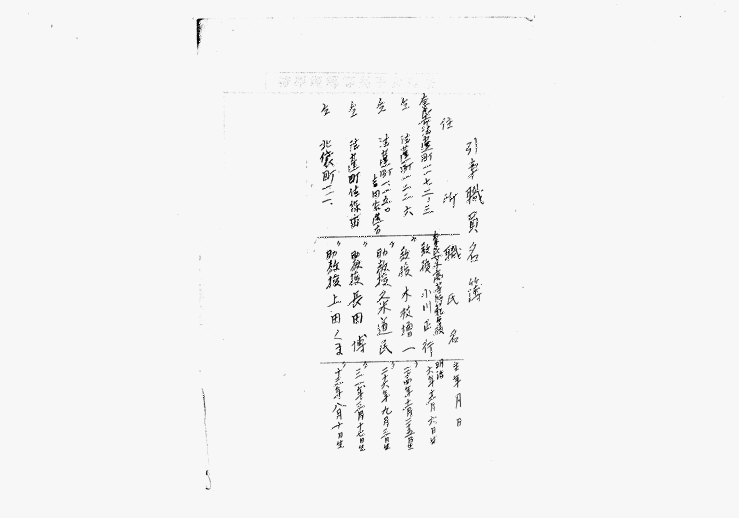 引率職員名簿
住所 職氏名 生年月日
奈良市法蓮町一一七二ノ三 教授 小川正行 明治六年十二月六日生
仝 法蓮町一二二六 〃 教授 木枝増一 〃 二十四年十二月二十五日生
仝 法蓮町一一五〇 吉田寅蔵方 〃 助教授 久米道民 〃 二十六年九月三日生
仝 法蓮町佐保田 〃 助教授 長田博 〃 三一年三月十七日生
仝 北袋町一一 〃 助教授 上田くま 〃 十三年八月十日生